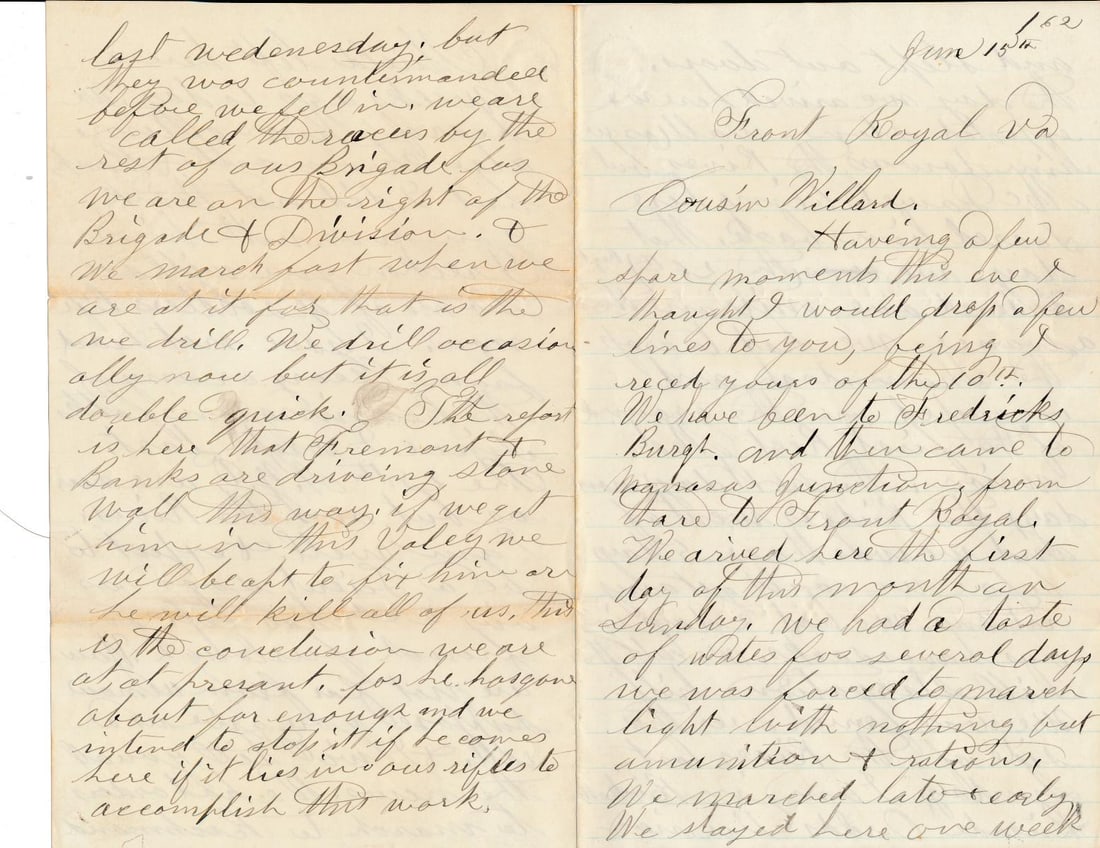 June 15th / 62
Front Royal Va
Cousin Willard.
Haveing a few
spare moments this eve I
thought I would drop a few
lines to you, being I
reced yours of the 10th.
We have been to Fredricks
Burgh. and then came to
Manasas Junction, from
thare to Front Royal.
We arived here the first
day of this month on
Sunday. we had a taste
of water for several days
we was forced to march
light with nothing but
amunition & rations,
We marched late & early
We stayed here one week
last wedenesday. but
they was countermanded
before we fell in. we are
called the racers by the
rest of our Brigade for
we are on the right of the
Brigade & Division. &
We march fast when we
are at it for that is the
we drill. We drill occasion
ally now but it is all
double quick. The report
is here that Fremont &
Banks are driveing stone
wall this way. if we get
him in this Valey we
will be apt to fix him or
he will kill all of us. this
is the conclusion we are
at at presant. for he has gone
about far enough and we
intend to stop it if he comes
here if it lies in our rifles to
accomplish this work.